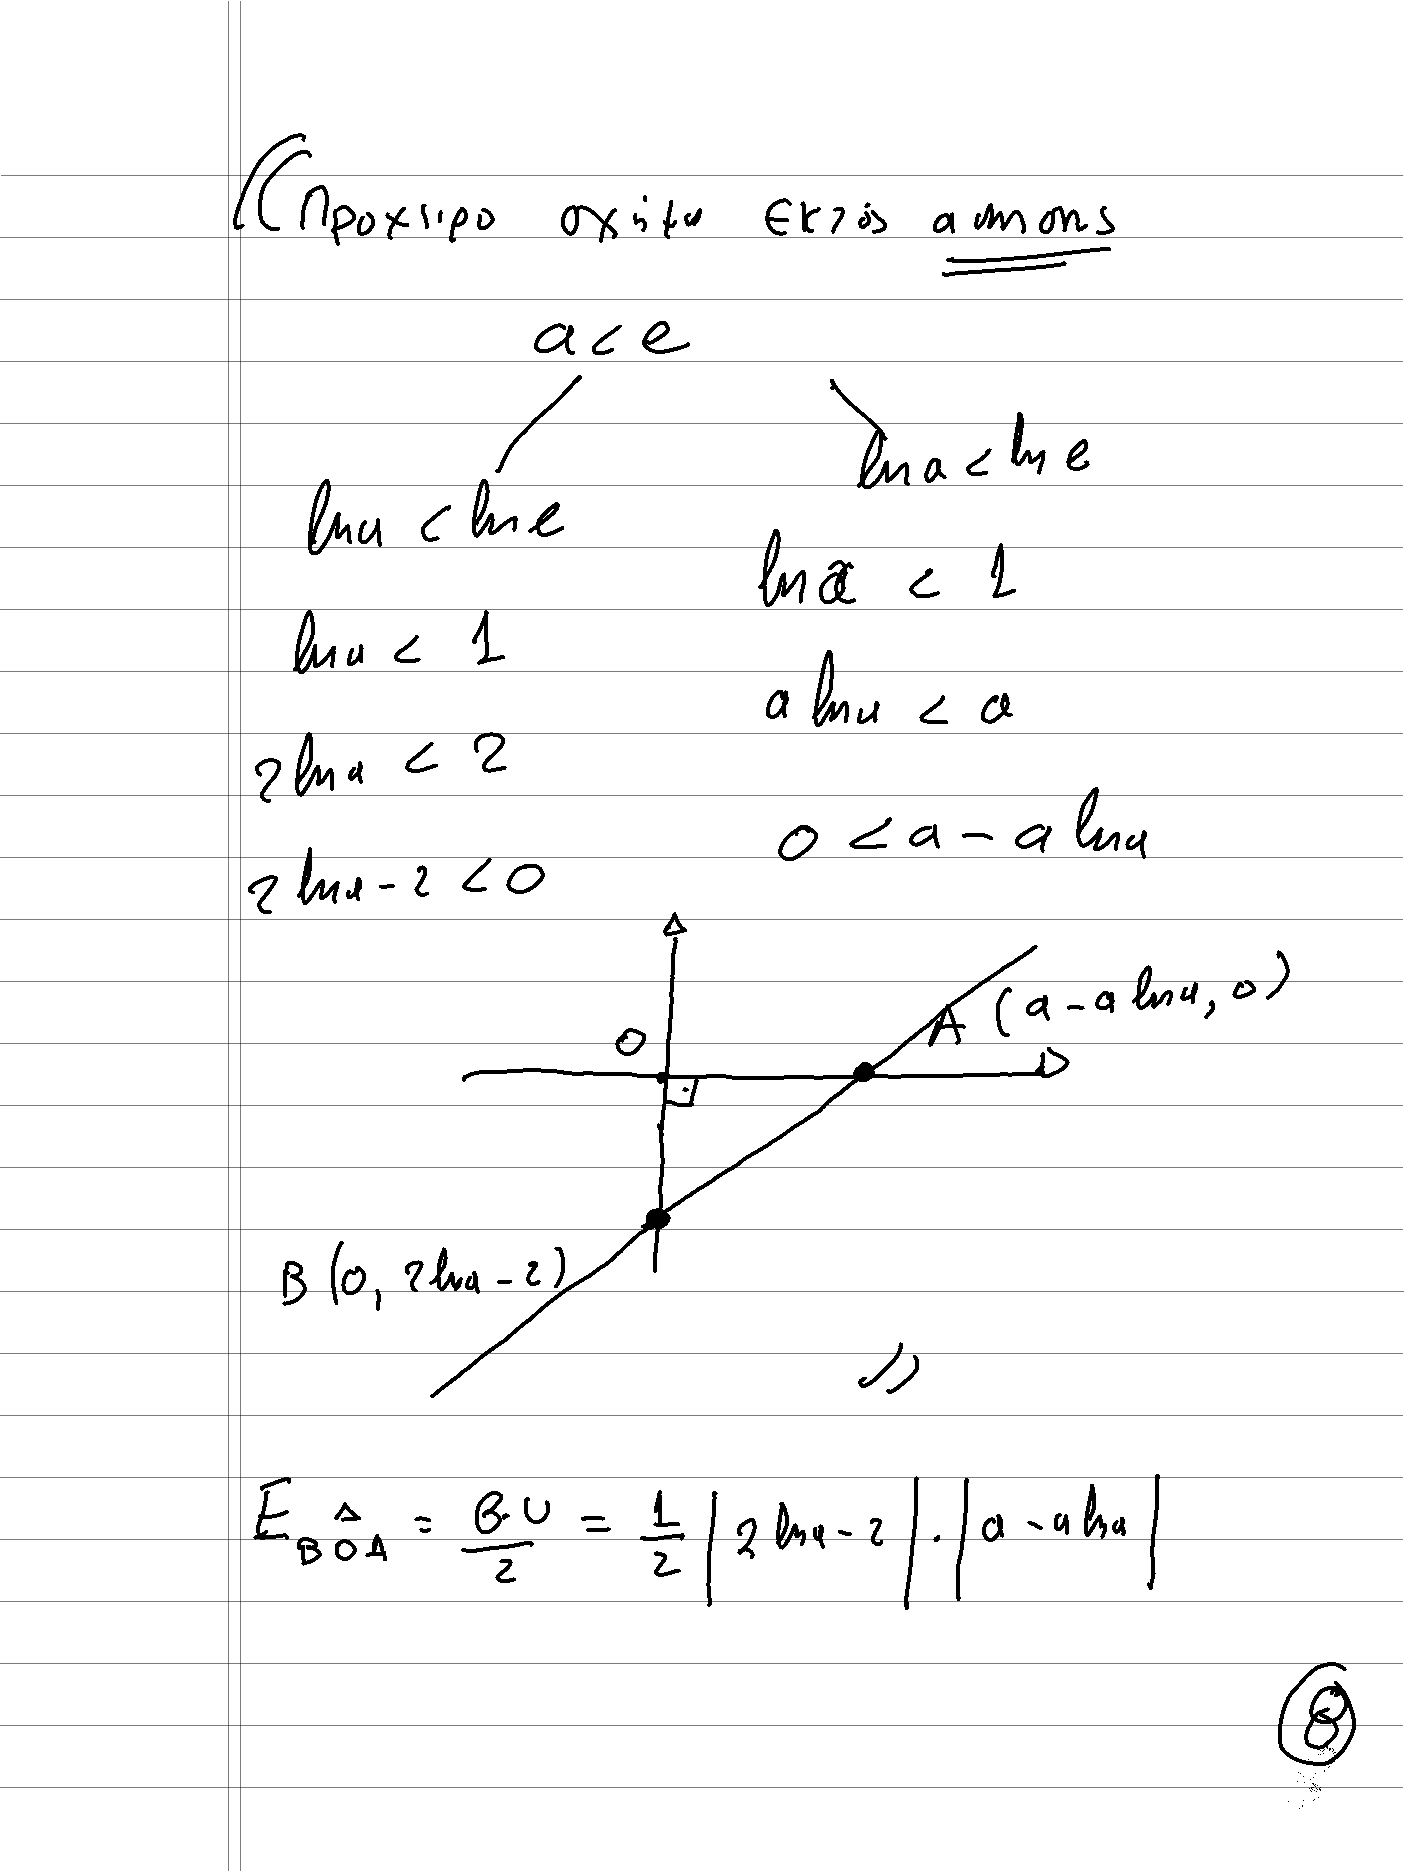 (( Προχειρο σχήμα εκτός άσκησης
a < e
ln a < ln e
ln a < 1
2 ln a < 2
2 ln a - 2 < 0
ln a < ln e
ln a < 1
a ln a < a
0 < a - a ln a
O
A (a - a ln a, 0)
B (0, 2 ln a - 2)
))
E BOA = β·υ/2 = 1/2 |2 ln a - 2| · |a - a ln a|
8